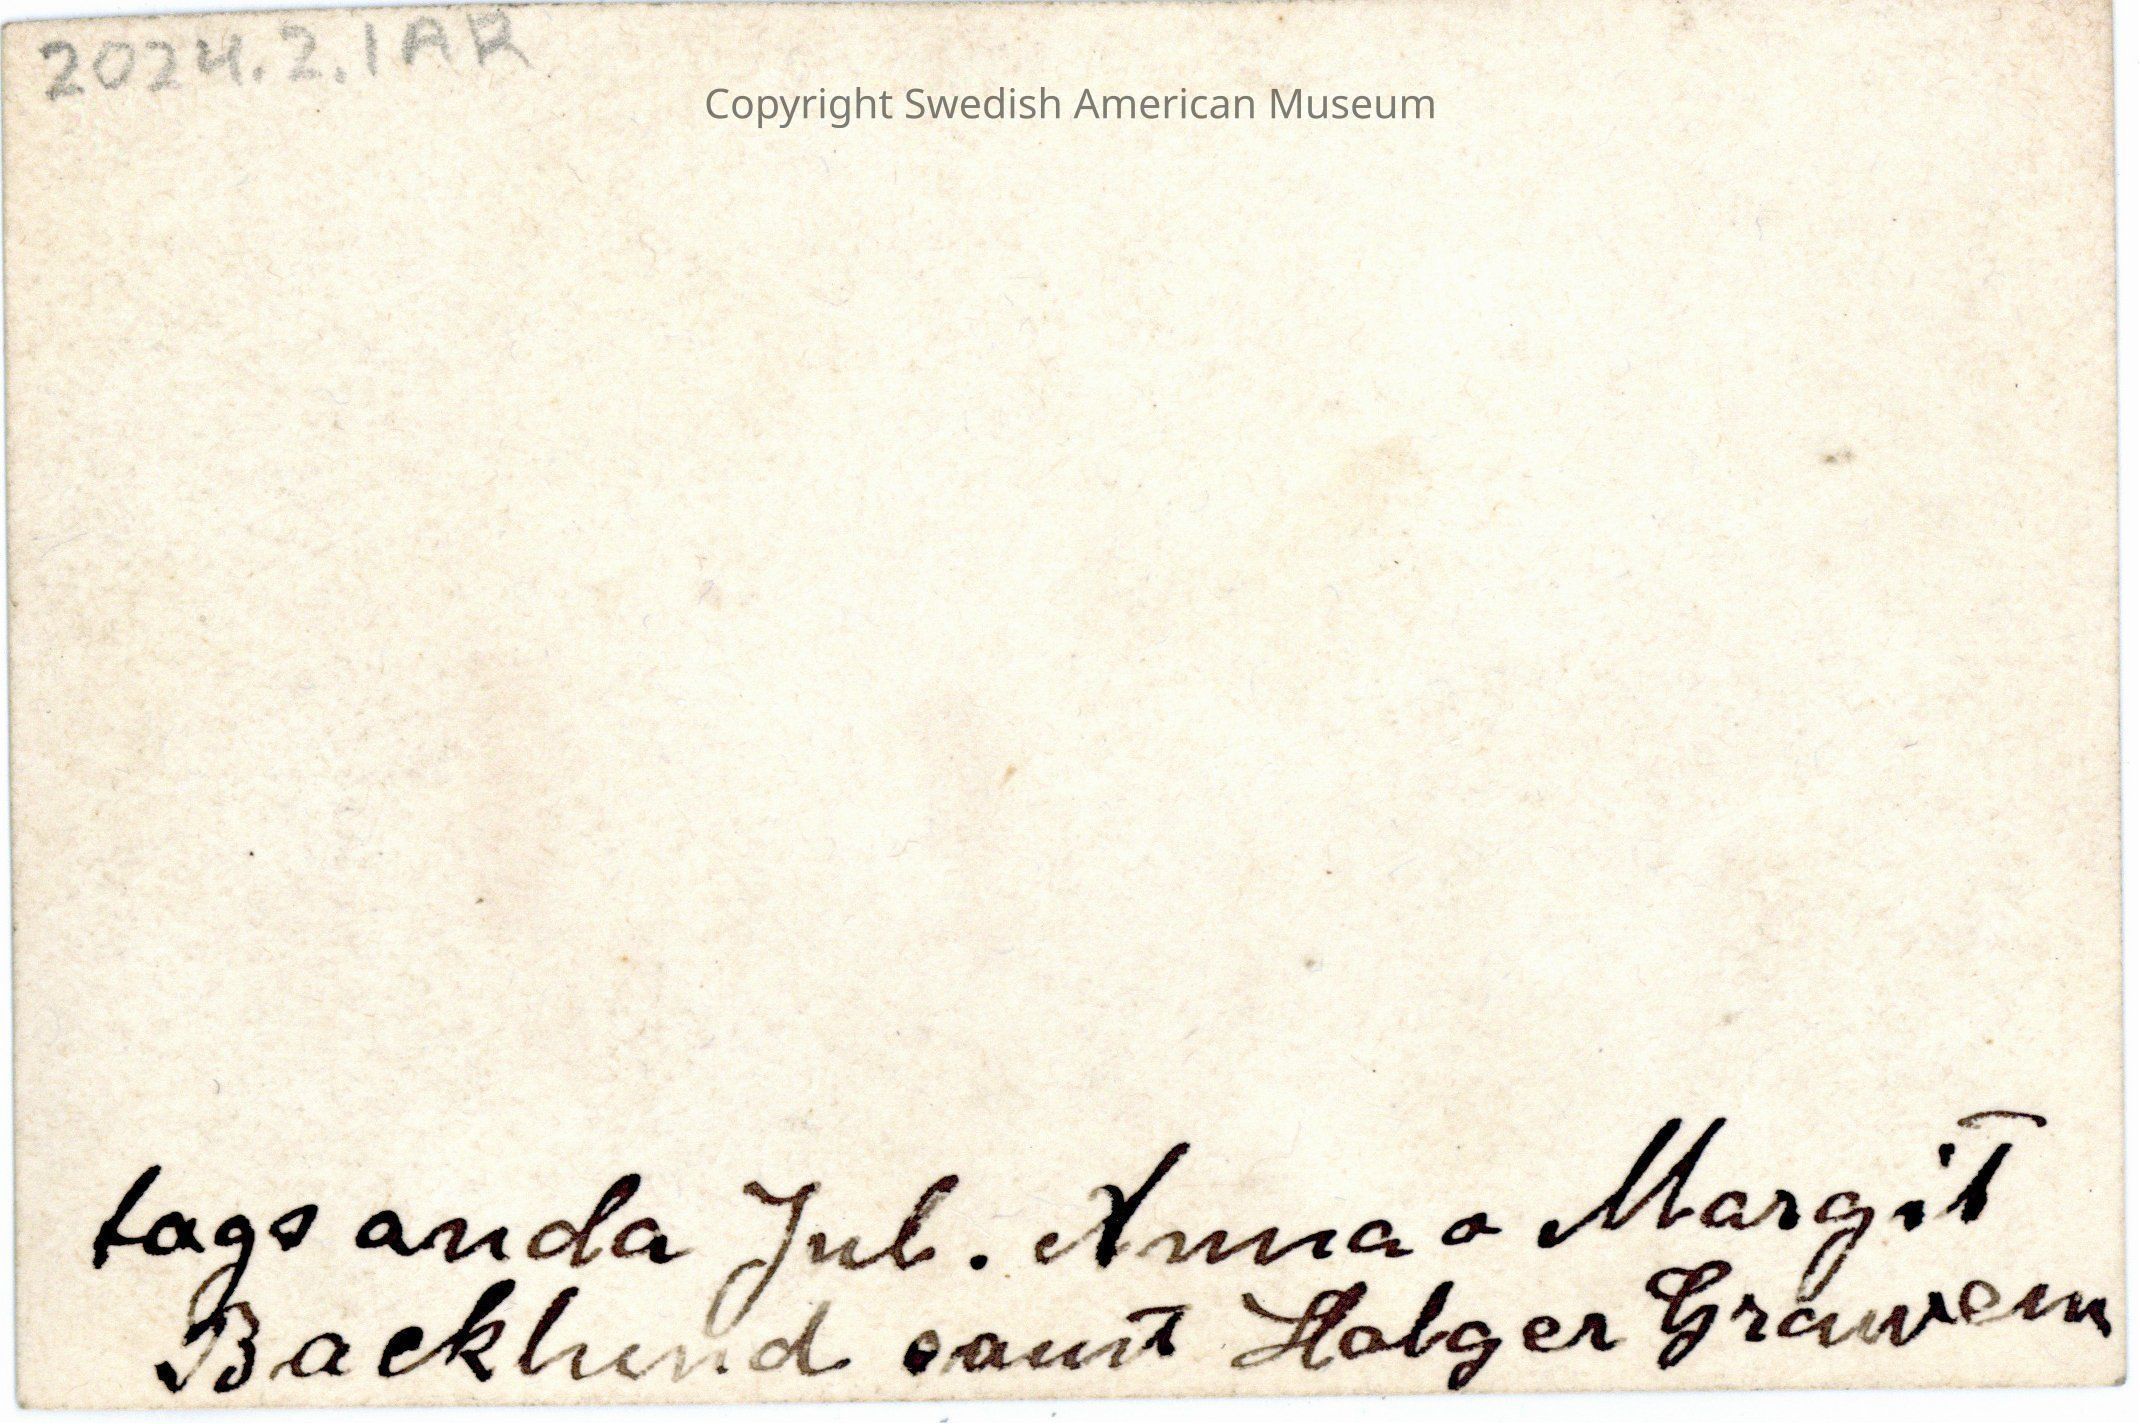 2024.2.1AR
Copyright Swedish American Museum
tags anda Jul. Anna o Margit
Backlund samt Holger Grawem